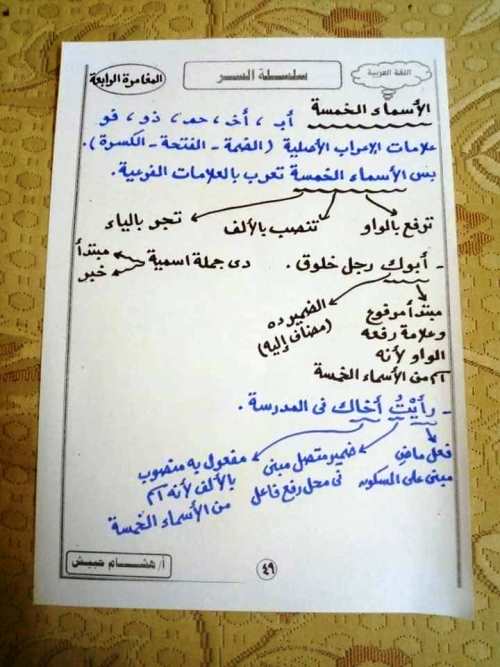 اللغة العربية
سلسلة السر
المغامرة الرابعة
الأسماء الخمسة أب ، أخ ، حم ، ذو ، فو
علامات الإعراب الأصلية (الضمة - الفتحة - الكسرة).
بس الأسماء الخمسة تعرب بالعلامات الفرعية.
ترفع بالواو تنصب بالألف تجر بالياء
- أبوك رجل خلوق . دى جملة اسمية
مبتدأ
خبر
مبتدأ مرفوع
وعلامة رفعه
الواو لأنه
اسم من الأسماء الخمسة
الضمير ده
(مضاف إليه)
- رأيْتُ أخاك فى المدرسة .
فعل ماضِ
مبنى على السكون
ضمير متصل مبنى
فى محل رفع فاعل
مفعول به منصوب
بالألف لأنه اسم
من الأسماء الخمسة
٤٩
أ/ هشام حبيش